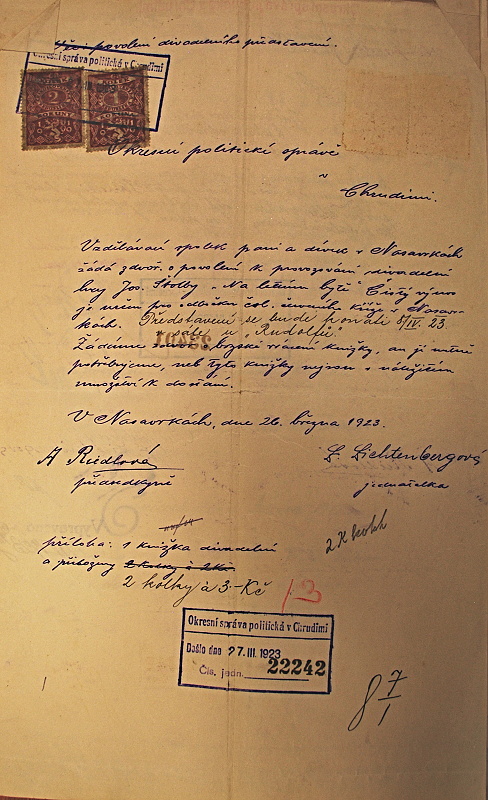 povolení divadelního představení.
Okresní správa politická v Chrudimi
Okresní politické správě
v
Chrudimi.
Vzdělávací spolek paní a dívek v Nasavrkách
žádá zdvoř. o povolení k provozování divadelní
hry Jos. Štolby „Na letním bytě“ Čistý výnos
je určen pro odbočku čsl. červeného kříže v Nasavr-
kách. Představení se bude konati 8/IV. 23.
v sále u „Rudolfů“.
Žádáme brzské vrácení knížky, an ji nutně
potřebujeme, neb tyto knížky nejsou v náležitém
množství k dostání.
V Nasavrkách, dne 26. března 1923.
A Riedlová
předsedkyně
L. Lichtenbergová
jednatelka
příloha: 1 knížka divadelní
a přiloženy 2 kolky à 2 Kč.
2 kolky à 3.- Kč
2 K kolk
13
Okresní správa politická v Chrudimi
Došlo dne 27. III. 1923
Čís. jedn. 22242
8 7/1